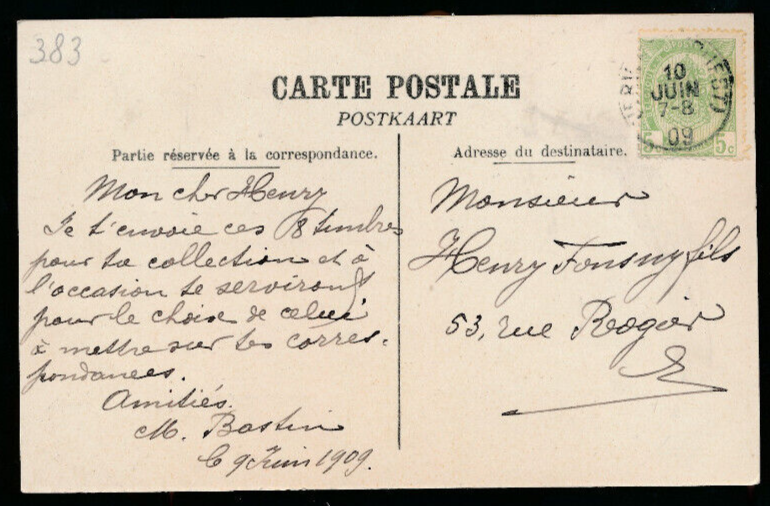 383
CARTE POSTALE
POSTKAART
Partie réservée à la correspondance.
Mon cher Henry
Je t'envoie ces 8 timbres
pour ta collection et à
l'occasion te serviront
pour le choix de celui
à mettre sur tes corres-
pondances.
Amitiés.
M. Bastin
Le 9 Juin 1909.
Adresse du destinataire.
Monsieur
Henry Fonsny fils
53, rue Rogier
10
JUIN
7-8
09
5 5c